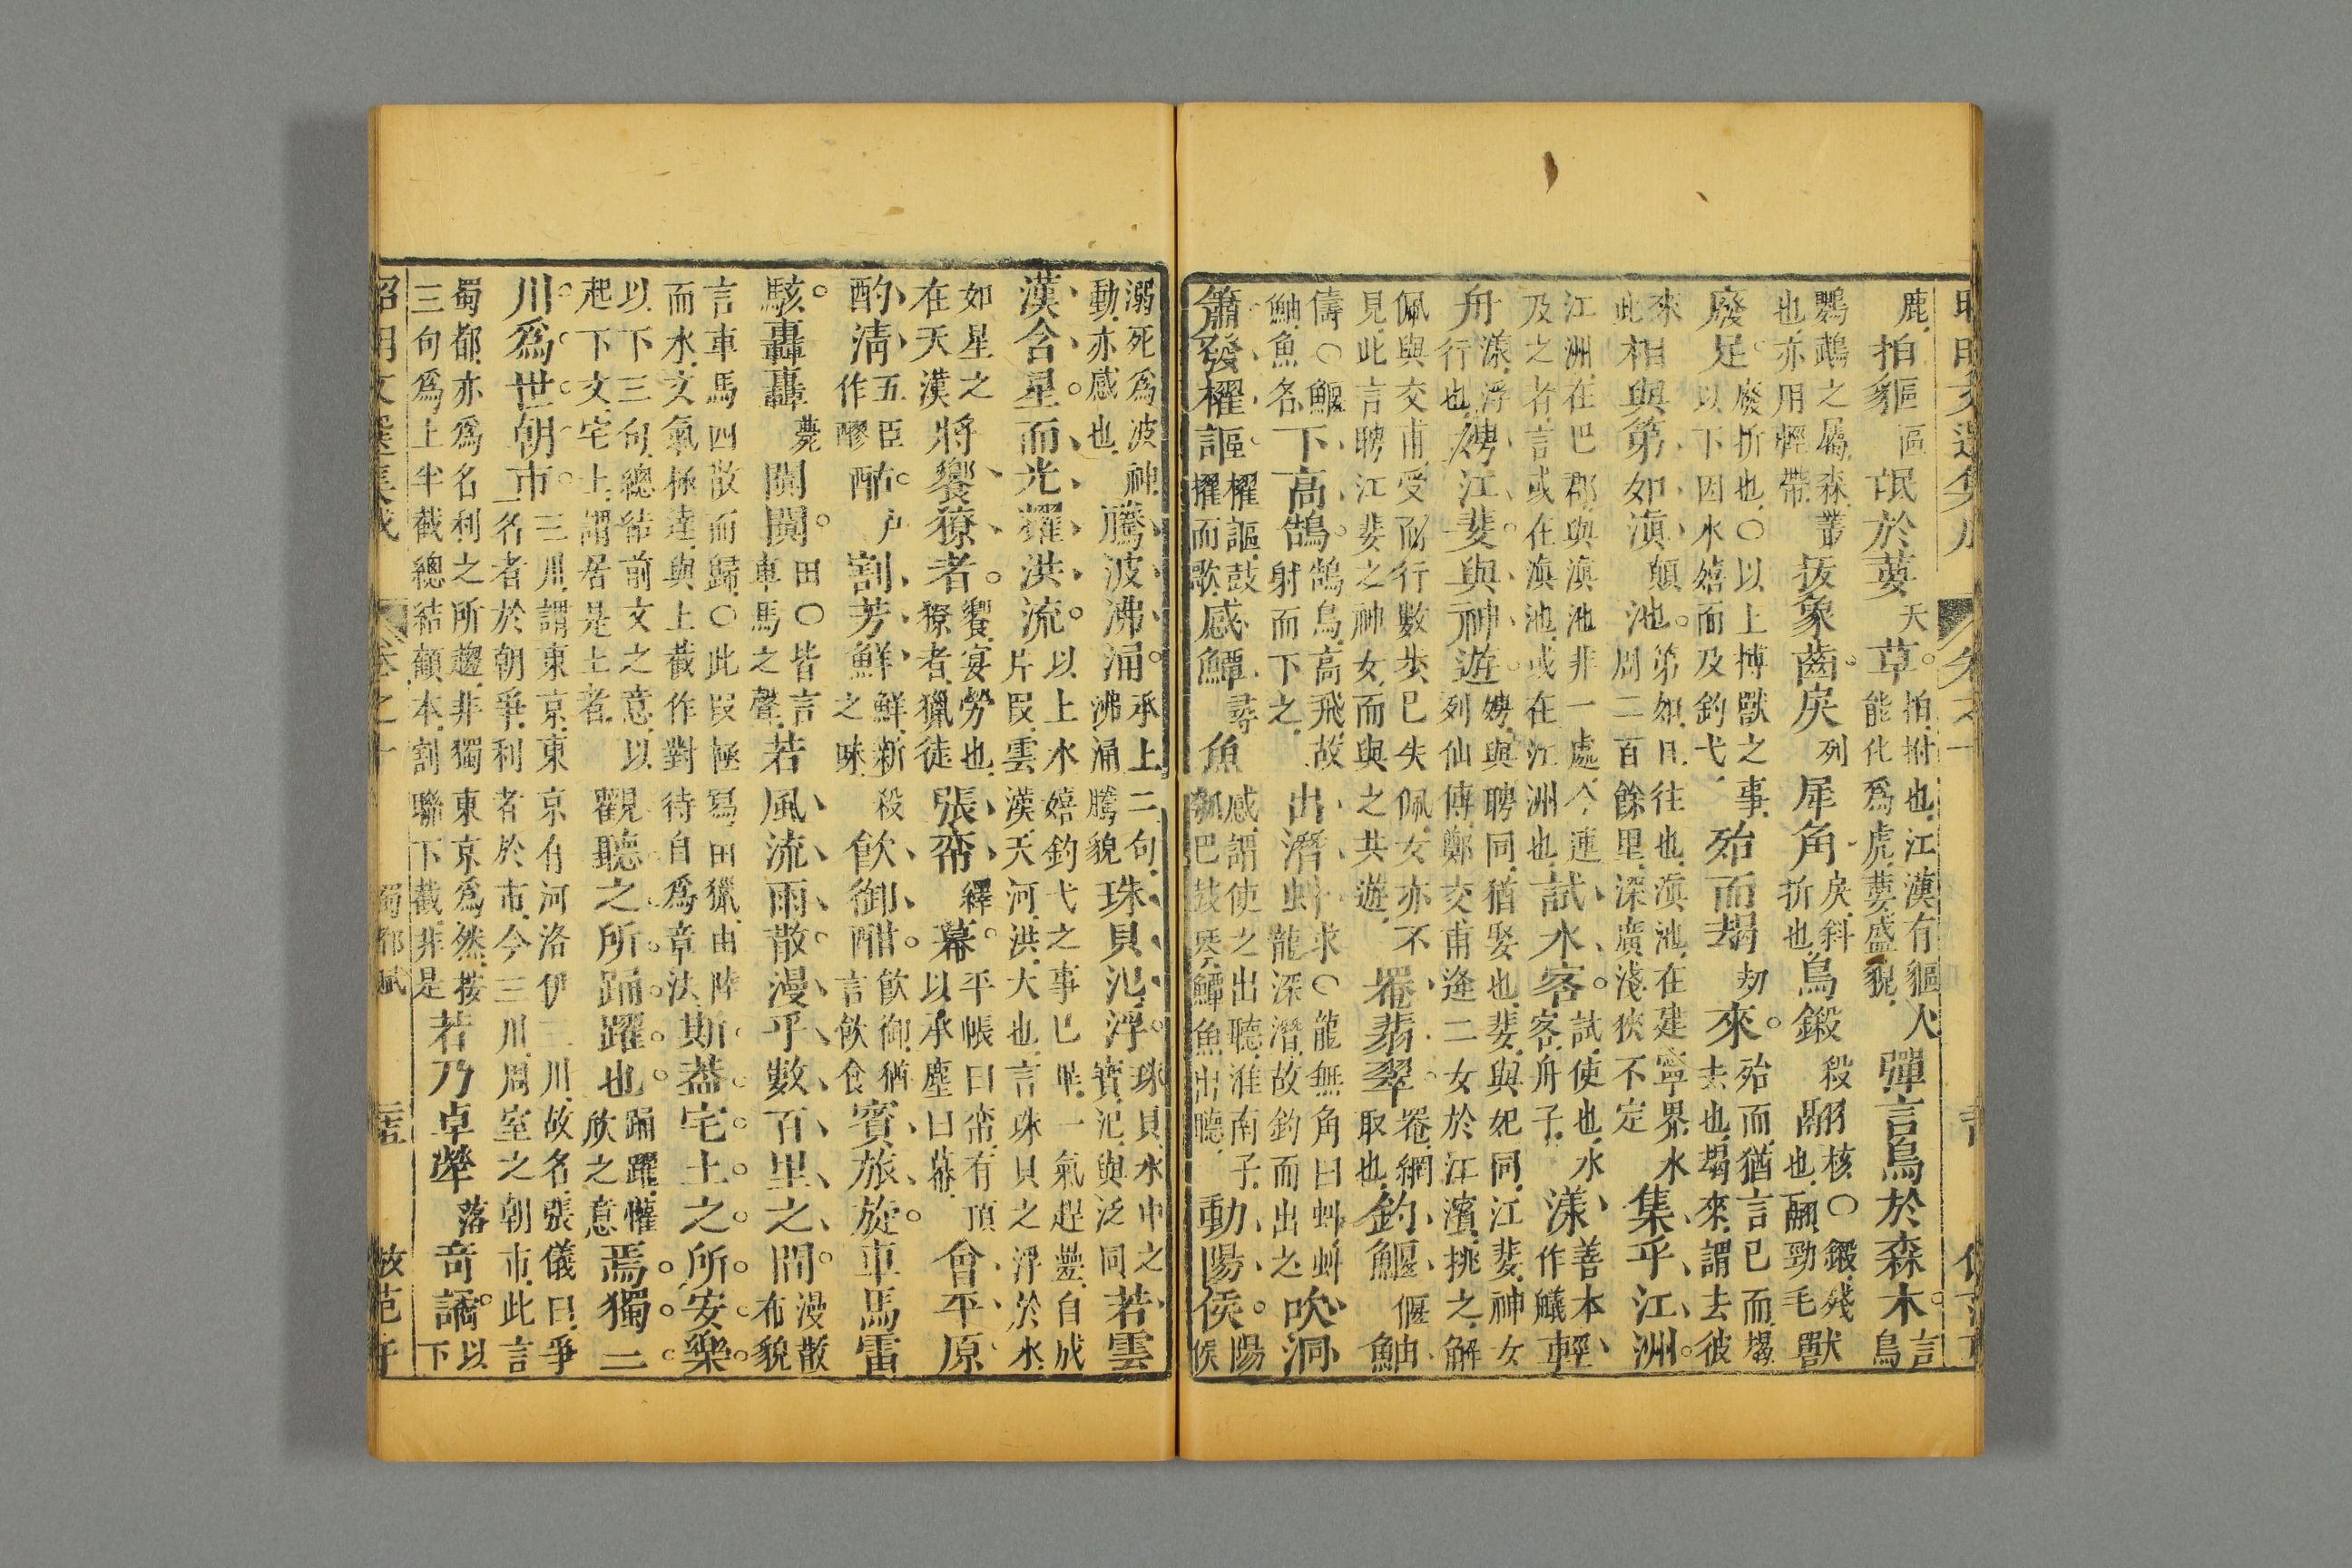 鹿拍貙區氓於葽夭草。拍拊也江漢有貙人能化為虎葽盛貌彈言鳥於森木。言鳥
鸚鵡之屬森叢也亦用輕帶拔象齒。戾列犀角戾斜折也鳥鎩殺翮核○鎩殘也翮勁毛獸
廢足。廢折也○以上搏獸之事以下因水嬉而及釣弋殆而朅刧來。殆而猶言已而朅去也朅來謂去彼
來此相與第如滇顛池。第如且往也滇池在建寧界水周二百餘里深廣淺狹不定集乎江洲。
江洲在巴郡與滇池非一處今連及之者言或在滇池或在江洲也試水客。試使也水客舟子漾善本作艤輕
舟漾浮行也娉江斐。與神遊。娉與聘同猶娶也斐與妃同江斐神女列仙傳鄭交甫逢二女於江濱挑之解
佩與交甫受而行數步已失佩女亦不見此言聘江斐之神女而與之共遊罨翡翠。罨網取也釣鰋偃鮋
儔○鰋鮋魚名下高鵠。鵠鳥高飛故射而下之出潛虯求○龍無角曰虯虯龍深潛故釣而出之吹洞
簫發櫂謳。櫂謳鼓擢而歌感鱏尋魚感謂使之出聽淮南子瓠巴鼓琴鱏魚出聽動陽侯。陽侯
溺死為波神動亦感也騰波沸涌。承上二句沸涌騰貌珠貝氾浮。珠貝水中之寶氾與泛同若雲
漢含星。而光耀洪流。以上水嬉釣弋之事已畢一氣趕疊自成片段雲漢天河洪大也言珠貝之浮於水
如星之在天漢將饗獠者。饗宴勞也獠者獵徒張帟繹幕。平帳曰帟有頂以承塵曰幕會平原
酌清五臣作醪酤。戶割芳鮮鮮新殺之味飲御酣。飲御猶言飲食賓旅旋。車馬雷
駭。轟轟薨闐闐。田○皆言車馬之聲若風流雨散。漫乎數百里之間。漫散布貌
言車馬四散而歸○此段極寫田獵由陸而水文氣極逹與上截作對待自為章法斯蓋宅土之所安樂。
以下三句總結前文之意以起下文宅土謂居是土者觀聽之所踊躍也。踊躍懽欣之意焉獨三
川為世朝市。三川謂東京東京有河洛伊三川故名張儀曰爭名者於朝爭利者於市今三川周室之朝市此言
蜀都亦為名利之所趨非獨東京為然接三句為上半截總結顧本割聯下截非是若乃卓犖落奇譎。以下
昭明文選集成 卷之十 蜀都賦